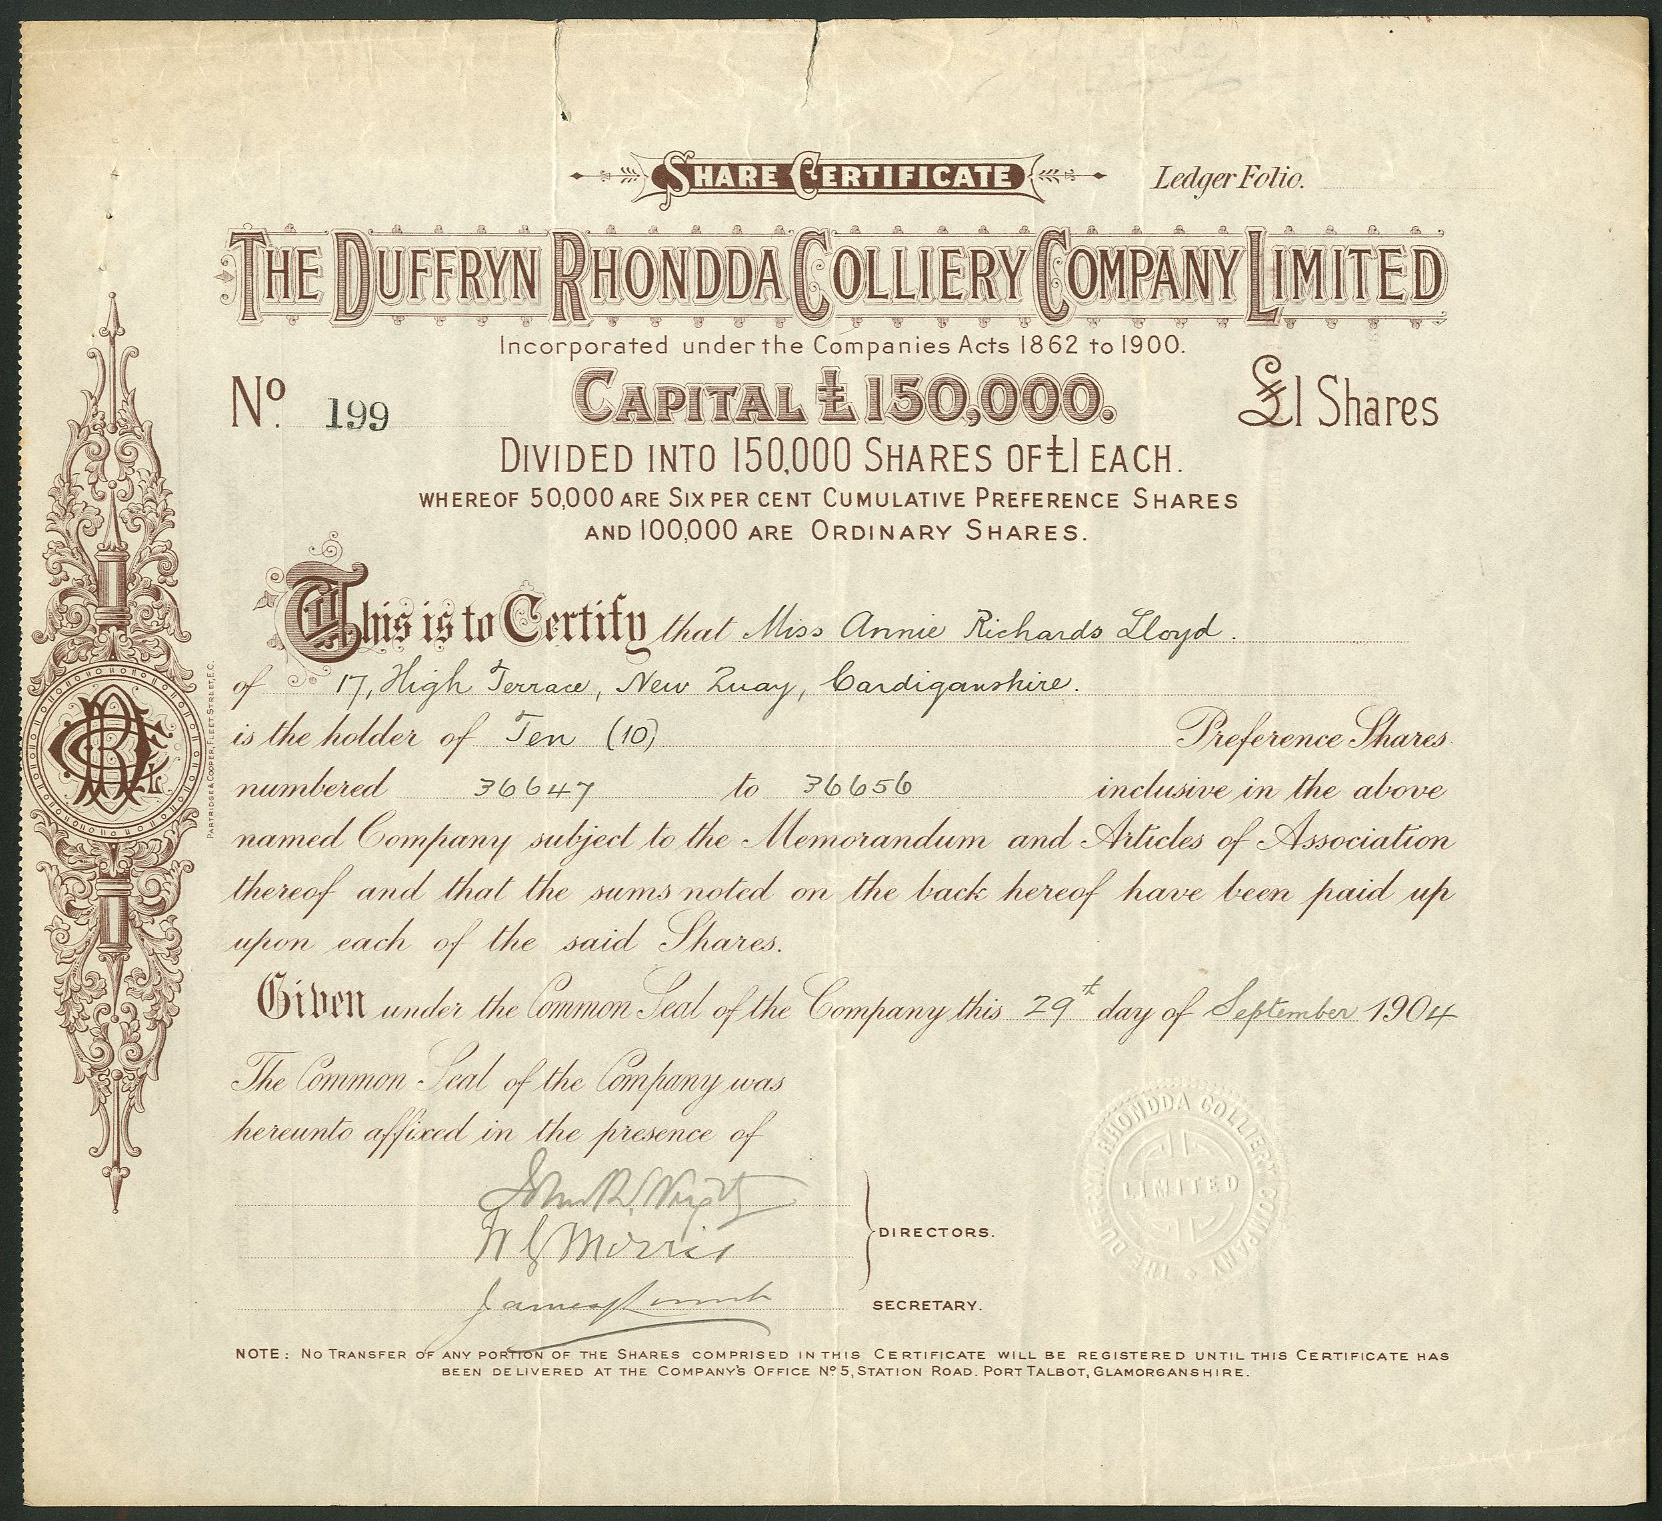 SHARE CERTIFICATE
Ledger Folio.
THE DUFFRYN RHONDDA COLLIERY COMPANY LIMITED
Incorporated under the Companies Acts 1862 to 1900.
No. 199
CAPITAL £150,000.
£1 Shares
DIVIDED INTO 150,000 SHARES OF £1 EACH.
WHEREOF 50,000 ARE SIX PER CENT CUMULATIVE PREFERENCE SHARES
AND 100,000 ARE ORDINARY SHARES.
This is to Certify that Miss Annie Richards Lloyd.
of 17, High Terrace, New Quay, Cardiganshire.
is the holder of Ten (10) Preference Shares
numbered 36647 to 36656 inclusive in the above
named Company subject to the Memorandum and Articles of Association
thereof and that the sums noted on the back hereof have been paid up
upon each of the said Shares.
Given under the Common Seal of the Company this 29th day of September 1904
The Common Seal of the Company was
hereunto affixed in the presence of
W Morris
DIRECTORS.
James
SECRETARY.
THE DUFFRYN RHONDDA COLLIERY COMPANY
LIMITED
NOTE: NO TRANSFER OF ANY PORTION OF THE SHARES COMPRISED IN THIS CERTIFICATE WILL BE REGISTERED UNTIL THIS CERTIFICATE HAS
BEEN DELIVERED AT THE COMPANY'S OFFICE No 5, STATION ROAD. PORT TALBOT, GLAMORGANSHIRE.
PARTRIDGE & COOPER, FLEET STREET, E.C.